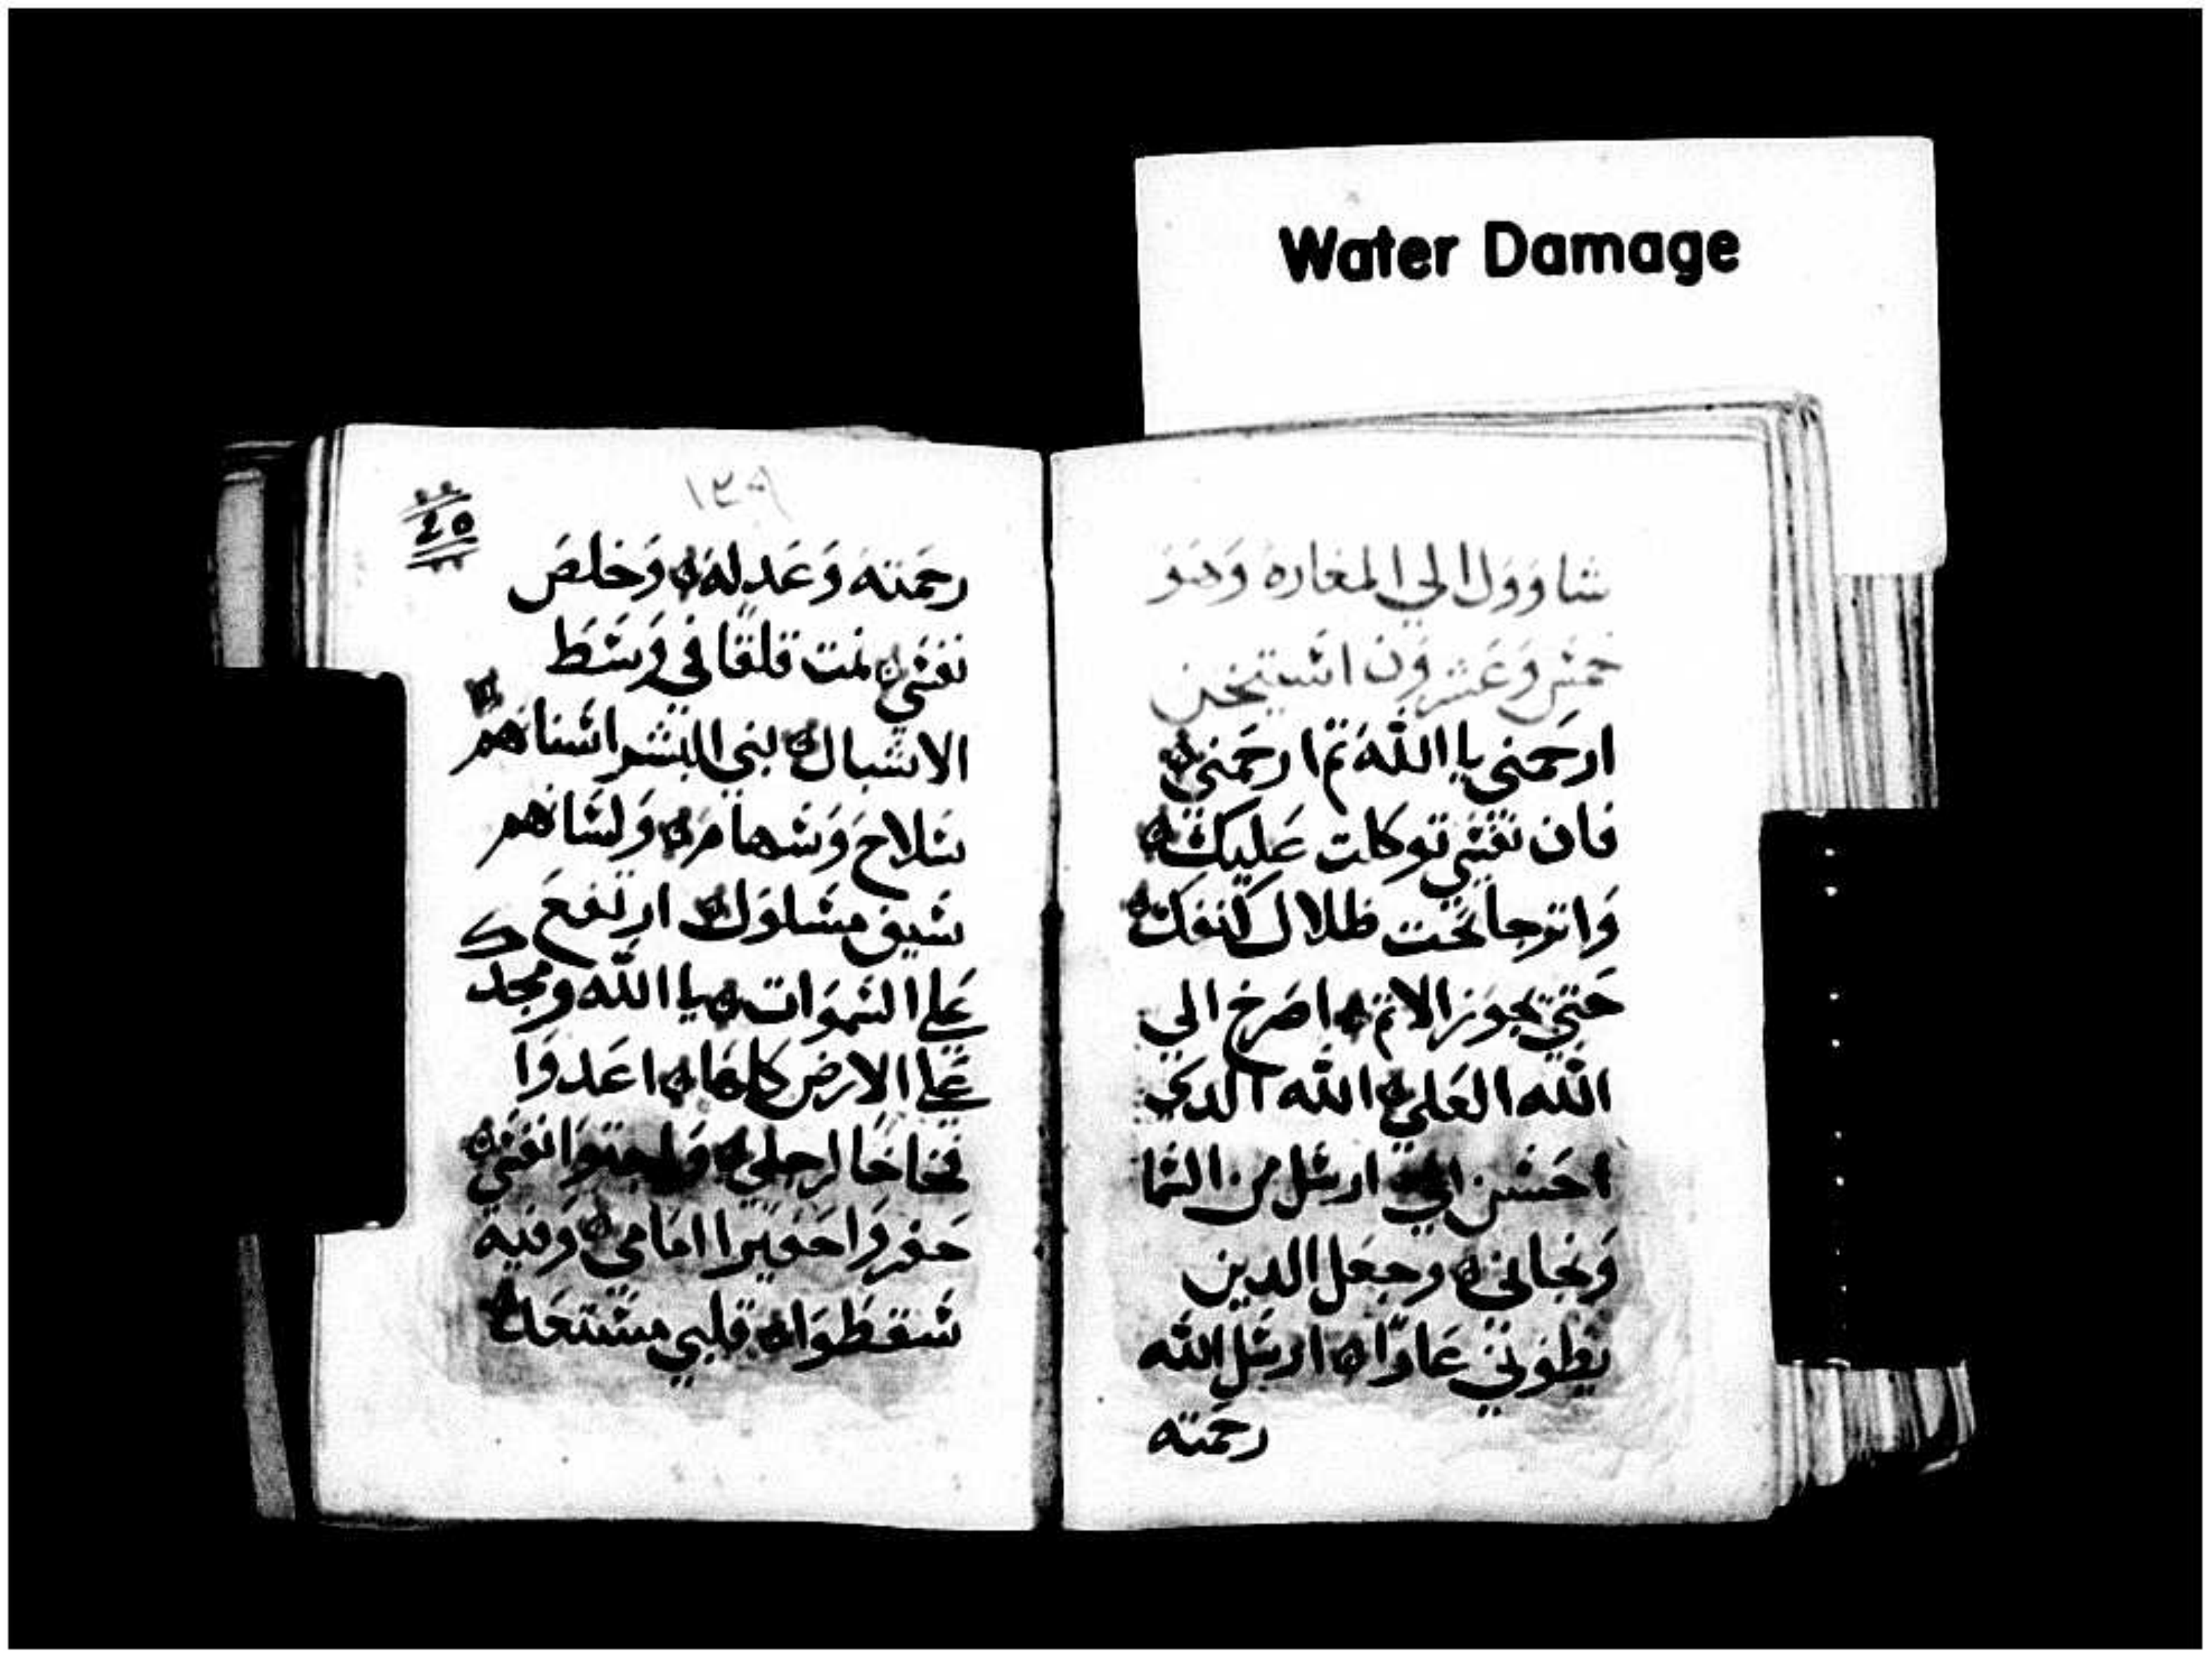 Water Damage
شاوول الي المغاره وهو
خمس وعشرون استيخن
ارحمني يا الله ثم ارحمني
فان نفسي توكلت عليك
واترجا تحت ظلال كنفك
حتي تجوز الاثم اصرخ الي
الله العلي الله الدي
احسن الي ارسل من السما
ونجاني وجعل الدين
يطوني عارا ارسل الله
رحمته
١٣٩
20
رحمته وعدله وخلص
نفسي نمت قلقا في وسط
الاشبال بني البشر اسنانهم
سلاح وسهام ولسانهم
سيف مسلول ارتفع
علي السموات يا الله ومجدك
علي الارض كلها اعدوا
فخاخا لرجلي واحنوا نفسي
حفروا حفيرا امامي وفيه
سقطوا قلبي مستعد